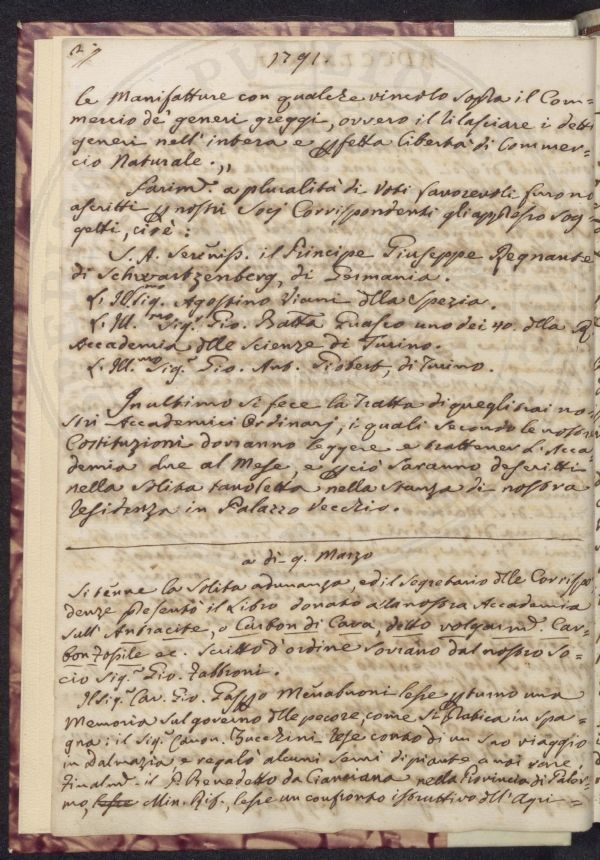 1791.
le Manifatture con qualche vincolo sopra il Com=
mercio de' generi greggi, ovvero il rilasciare i detti
generi nell' intera e pfetta libertà di Commer=
cio Naturale.„
Parim.e a pluralità di Voti favorevoli furono
ascritti p nostri Socj Corrispondenti gli appresso Sog
getti, cioè:
S. A. Sereniss. il Principe Giuseppe Regnante
di Schwartzenberg, di Germania.
L' Ill.mo Sig. Agostino Viani dlla Spezia.
L' Ill.mo Sig.r Gio. Batta Guasco uno dei 40. dlla R.
Accademia dlle Scienze di Turino.
L' Ill.mo Sig.r Gio. Ant. Giobert, di Turino.
In ultimo si fece la Tratta di quegli trai no=
stri Accademici Ordinarj, i quali secondo le nostre
Costituzioni dovranno leggere e trattener l' Acca
demia due al Mese, e pciò saranno descritti
nella solita tavoletta nella stanza di nostra
residenza in Palazzo Vecchio.
a di 9. Marzo
Si tenne la solita adunanza, ed il Segretario dlle Corrispo
denze presentò il Libro donato alla nostra Accademia
sull' Antracite, o Carbon di Cava, detto volgarm.e Car=
bon Fossile ec. scritto d' ordine Sovrano dal nostro So=
cio Sig.r Gio. Fabbroni.
Il Sig.r Cav. Gio. Menabuoni lesse p turno una
Memoria sul governo dlle pecore, come si pratica in Spa=
gna; il Sig.r Canon. Zucchini rese conto di un suo viaggio
in Dalmazia e regalò alcuni semi di piante a noi rare,
Finalm.e il P. Benedetto da nella Provincia di Paler=
mo, Min. Rif., lesse un confronto istruttivo dll' Agri=